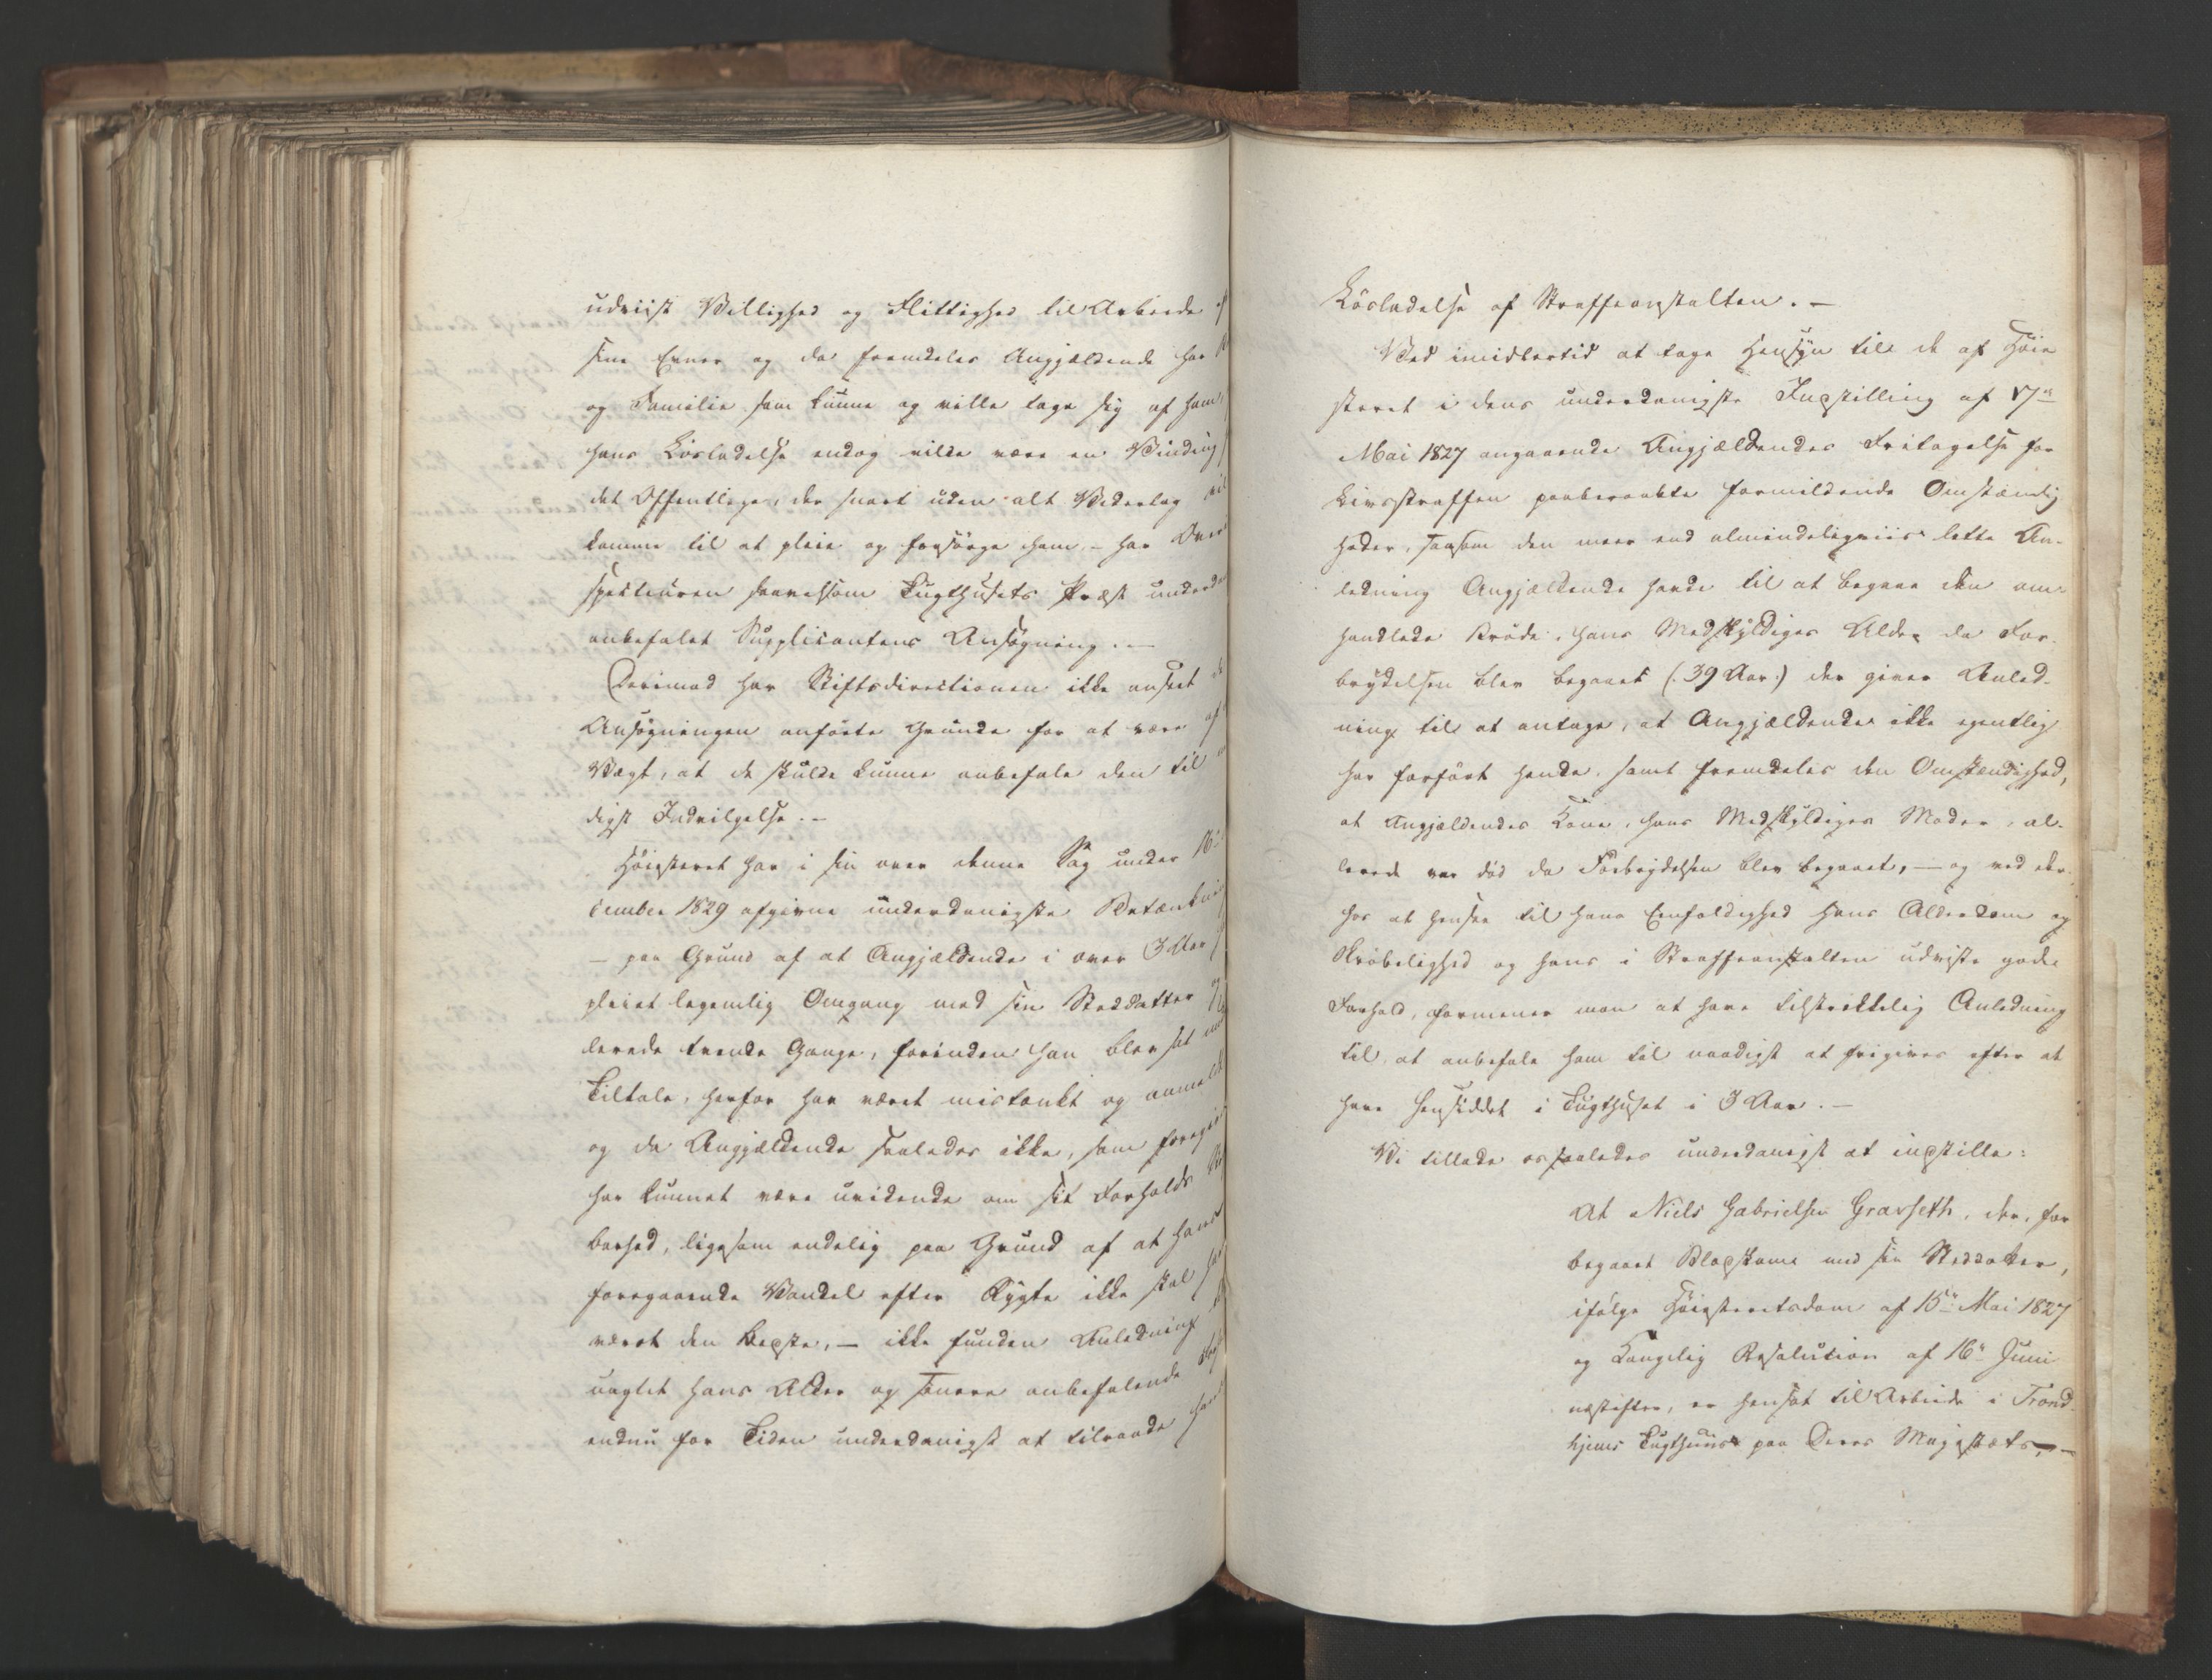 udviist Villighed og Flittighed til Arbeide
sine Evner og da fremdeles Angjældende har
og Familie som kunne og ville tage sig af ham,
hans Løsladelse endog vilde være en Vinding
det Offentlige, der snart uden alt Vederlag vil
komme til at pleie og forsørge ham, – har Over
specteuren saavelsom Tugthusets Præst underd
anbefalet Supplicantens Ansøgning. –
Derimod har Stiftsdirectionen ikke anseet de
Ansøgningen anførte Grunde for at være af
Vægt, at de skulde kunne anbefale den til
digst Indvilgelse. –
Høiesteret har i sin over denne Sag under 16
cember 1829 afgivne underdanigste Betænkni
– paa Grund af at Angjældende i over 3 Aar
pleiet legemlig Omgang med sin Steddatter og
lerede trende Gange, forinden han blev sat un
Tiltale, herfor har været mistænkt og anmeldt
og da Angjældende saaledes ikke, som foregi
har kunnet være uvidende om sit Forholds
barhed, ligesom endelig paa Grund af at hans
foregaaende Vandel efter Rygte ikke skal ha
været den bedste, – ikke funden Anledning
uagtet hans Alder og senere anbefalende
endnu for Tiden underdanigst at tilraade hans
Løsladelse af Straffeanstalten. –
Ved imidlertid at tage Hensyn til de af Høie
steret i dens underdanigste Indstilling af 17de
Mai 1827 angaaende Angjældendes Fritagelse for
Livsstraffen paaberaabte formildende Omstændig
heder, saasom den meer end almindeligviis lette An-
ledning Angjældende havde til at begaae den om-
handlede Brøde, hans Medskyldiges Alder da For-
brydelsen blev begaaet (: 39 Aar :) der giver Anled-
ning til at antage, at Angjældende ikke egentlig
har forført hende, samt fremdeles den Omstændighed,
at Angjældendes Kone, hans Medskyldiges Moder, al-
lerede var død da Forbrydelsen blev begaaet, – og ved der-
hos at hensee til hans Eenfoldighed hans Alderdom og
Skrøbelighed og hans i Straffeanstalten udviste gode
Forhold, formener man at have tilstrækkelig Anledning
til at anbefale ham til naadigst at frigives efter at
have hensiddet i Tugthuset i 3 Aar. –
Vi tillade os saaledes underdanigst at indstille:
At Niels Gabrielsen Gravseth, der, for
begaaet Blodskam med sin Steddatter,
ifølge Høiesteretsdom af 15de Mai 1827
og Kongelig Resolution af 16de Juni
næstefter, er hensat til Arbeide i Trond-
hjems Tugthuus paa Deres Majestæts –